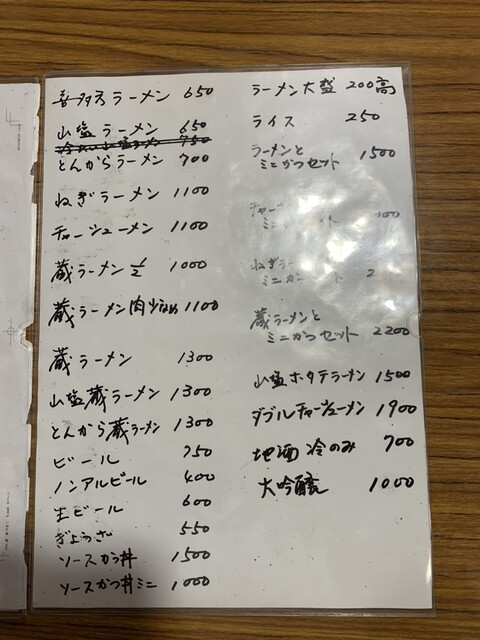 喜多方ラーメン 650
山塩ラーメン 650
冷たい山塩ラーメン 750
とんからラーメン 700
ねぎラーメン 1100
チャーシューメン 1100
蔵ラーメン 1/2 1000
蔵ラーメン肉少なめ 1100
蔵ラーメン 1300
山塩蔵ラーメン 1300
とんから蔵ラーメン 1300
ビール 750
ノンアルビール 400
生ビール 600
ぎょうざ 550
ソースかつ丼 1500
ソースかつ丼ミニ 1000
ラーメン大盛 200高
ライス 250
ラーメンと
ミニかつセット 1500
チャー
ミニ
ねぎラー
ミニか
蔵ラーメンと
ミニかつセット 2200
山塩ホタテラーメン 1500
ダブルチャーシューメン 1900
地酒 冷のみ 700
大吟醸 1000